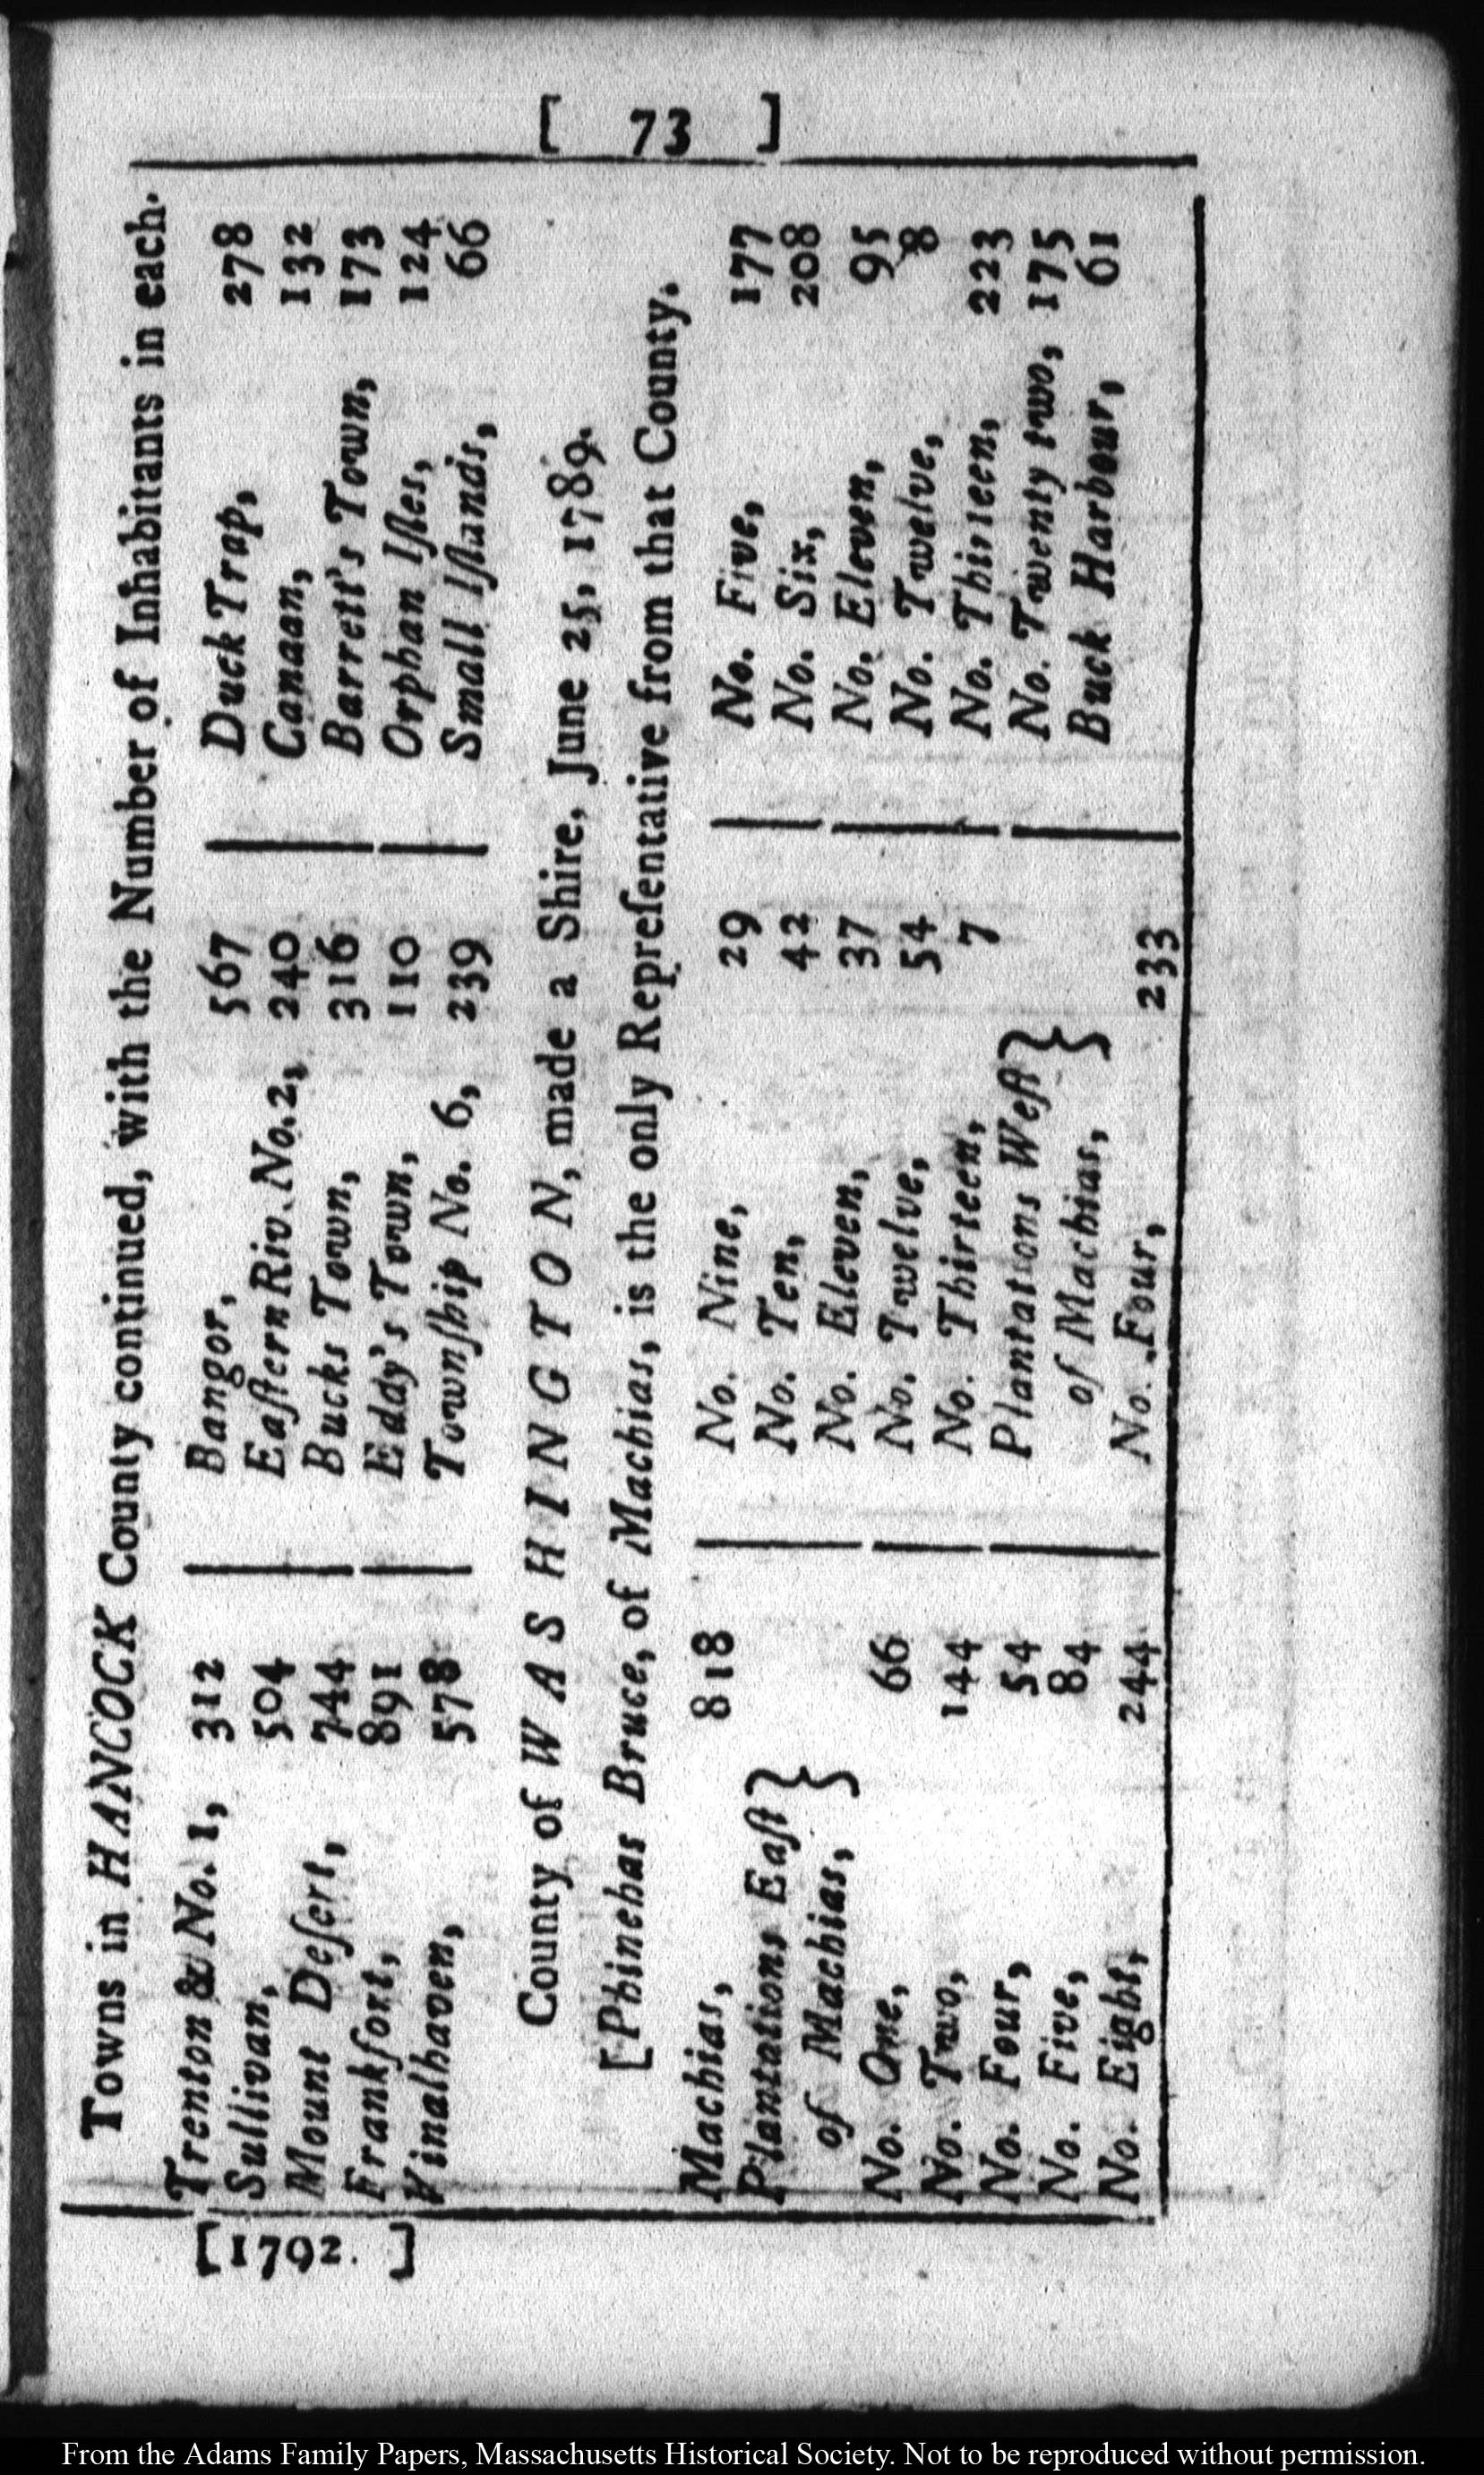 [ 73 ]
Towns in HANCOCK County continued, with the Number of Inhabitants in each.
Trenton & No. 1, 312
Sullivan, 504
Mount Deſert, 744
Frankfort, 891
Vinalhaven, 578
Bangor, 567
Eaſtern Riv. No. 2, 240
Bucks Town, 316
Eddy's Town, 110
Townſhip No. 6, 239
Duck Trap, 278
Canaan, 132
Barrett's Town, 173
Orphan Iſles, 124
Small Iſlands, 66
County of WASHINGTON, made a Shire, June 25, 1789.
[Phinehas Bruce, of Machias, is the only Repreſentative from that County.
Machias, 818
Plantations Eaſt }
of Machias, }
No. One, 66
No. Two, 144
No. Four, 54
No. Five, 84
No. Eight, 244
No. Nine, 29
No. Ten, 42
No. Eleven, 37
No. Twelve, 54
No. Thirteen, 7
Plantations Weſt }
of Machias, }
No. Four, 233
No. Five, 177
No. Six, 208
No. Eleven, 95
No. Twelve, 8
No. Thirteen, 223
No. Twenty two, 175
Buck Harbour, 61
[1792. ]
From the Adams Family Papers, Massachusetts Historical Society. Not to be reproduced without permission.